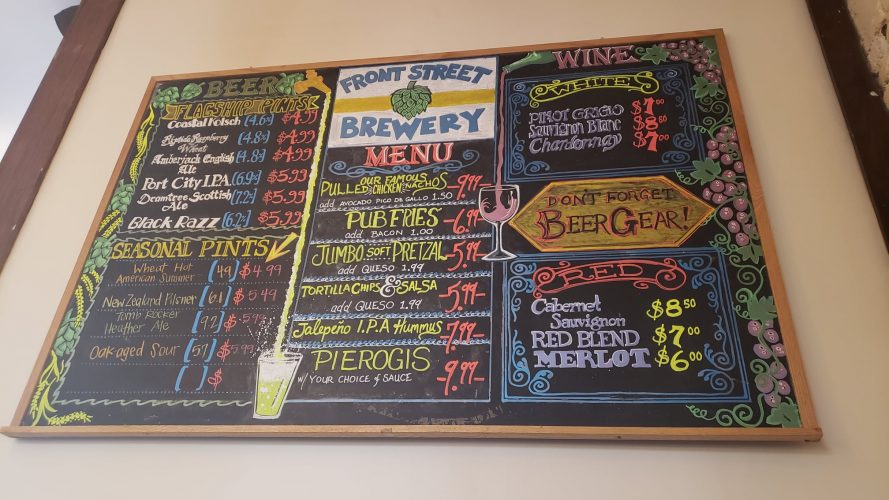 BEER
FLAGSHIP PINTS
Coastal Kolsch (4.6%) $4.99
Riptide Raspberry Wheat (4.8%) $4.99
Amberjack English Ale (4.8%) $4.99
Port City I.P.A. (6.9%) $5.99
Dramtree Scottish Ale (7.2%) $5.99
Black Razz (6.2%) $5.99
SEASONAL PINTS
Wheat Hot
American Summer [4.9] $4.99
New Zealand Pilsner [6.1] $5.49
Heather Ale $5.99
Oak aged Sour [5.7] $5.99
[ ] $
FRONT STREET
BREWERY
MENU
OUR FAMOUS
PULLED CHICKEN NACHOS 9.99
add AVOCADO PICO DE GALLO 1.50
PUB FRIES -6.99
add BACON 1.00
JUMBO SOFT PRETZAL 5.99
add QUESO 1.99
TORTILLA CHIPS & SALSA -5.99-
add QUESO 1.99
Jalepeño I.P.A Hummus -7.99-
PIEROGIS -9.99-
W/ YOUR CHOICE of SAUCE
WINE
WHITES
PINOT GRIGIO
Sauvignon Blanc $8.50
Chardonnay $7.00
DON'T FORGET
BEER GEAR!
RED
Cabernet
Sauvignon $8.50
RED BLEND $7.00
MERLOT $6.00